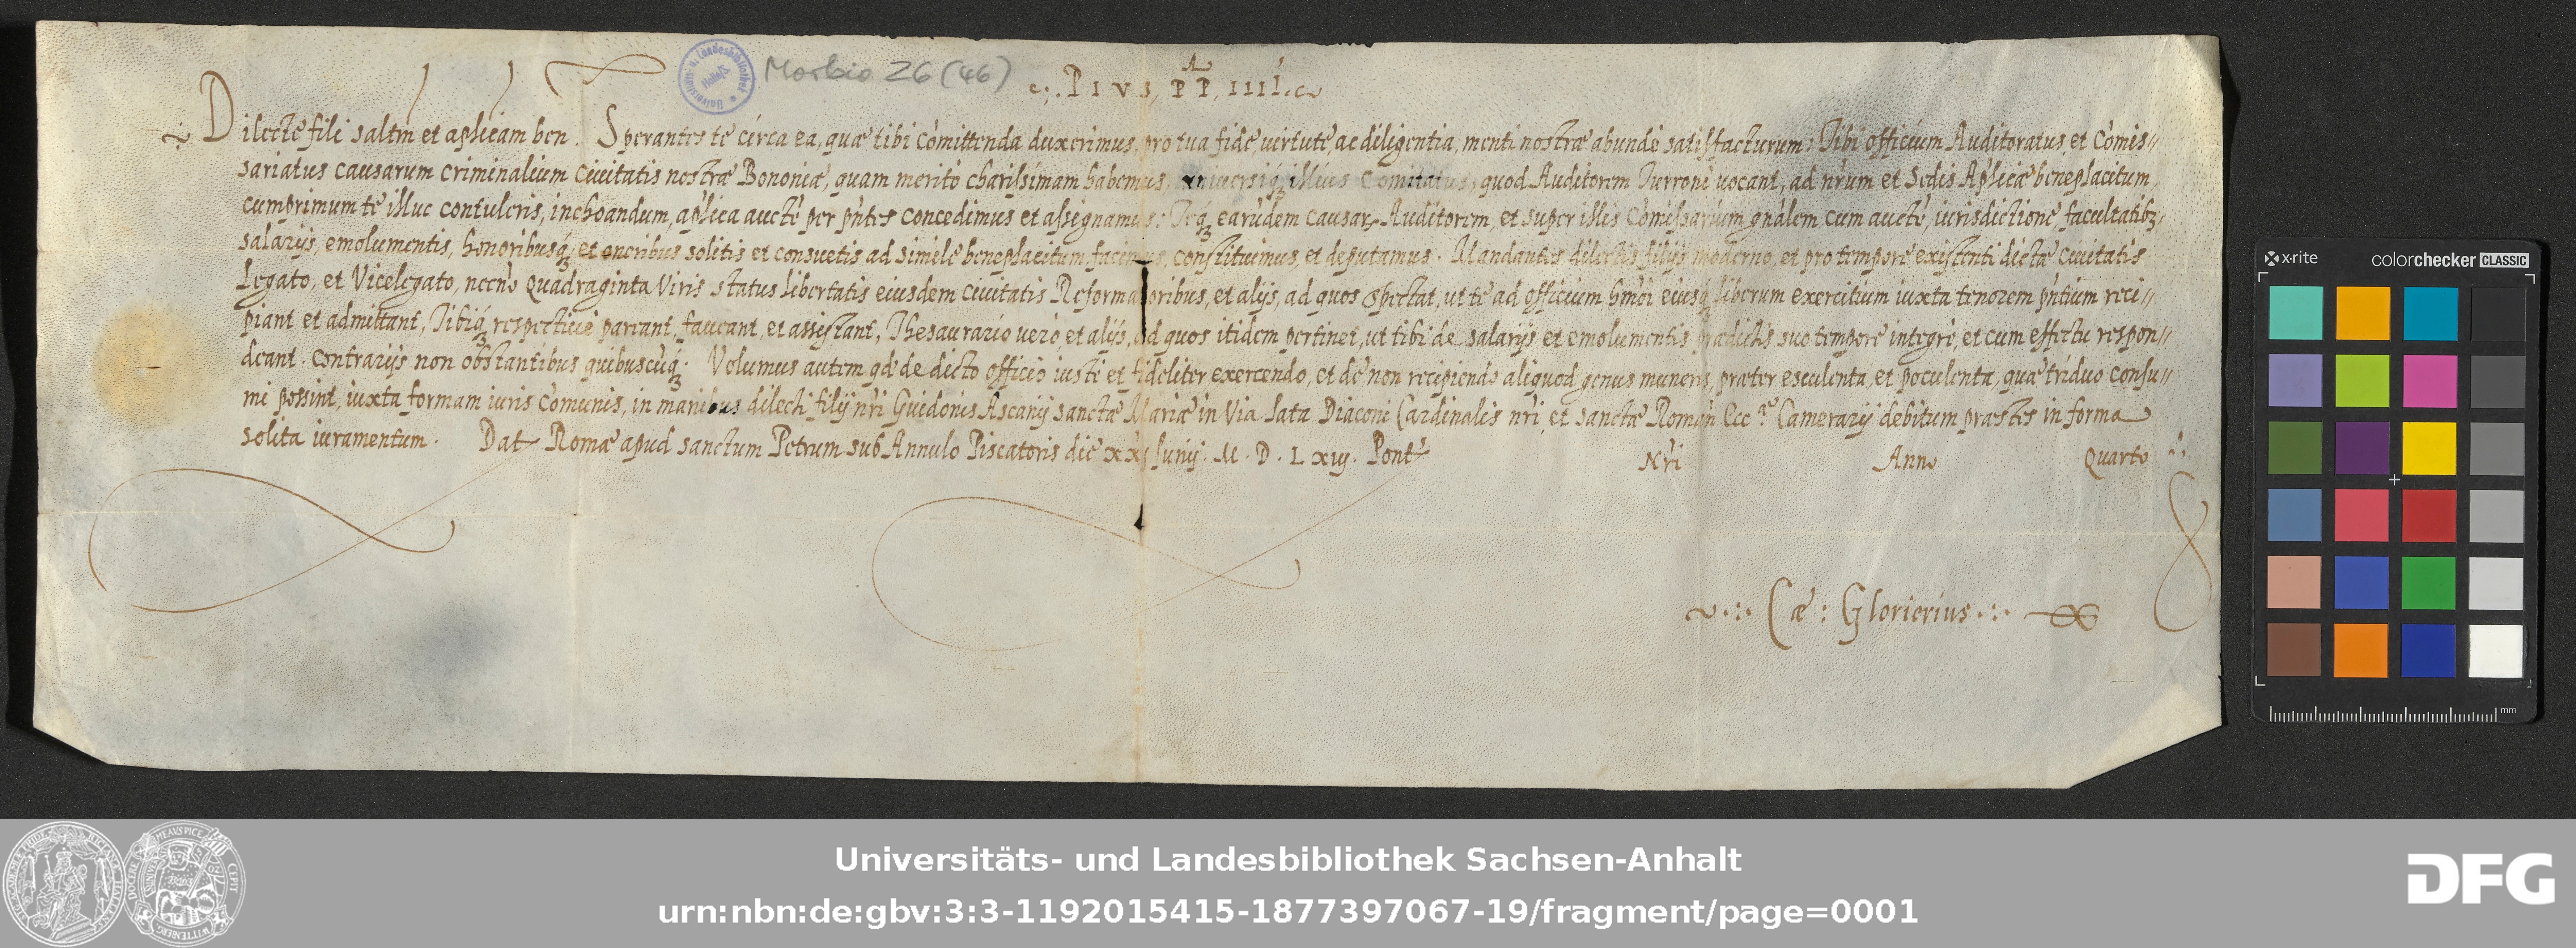 Morbio 26 (46)
PIVS, PP, IIII.
Dilecte fili saltm et aplicam ben. Sperantes te circa ea, quæ tibi cómittenda duxerimus, pro tua fide virtute, ac diligentia, menti nostræ abundè satisfacturum: Tibi officium Auditoratus, et Cómis„
sariatus causarum criminalium Civitatis nostræ Bononiæ, quam merito charissimam habemus, universiq; illius Comitatus, quod Auditorem Turroné vocant, ad nrum et Sedis Aplicæ beneplacitum,
cumprimum te illuc contuleris, inchoandum, aplica aucte per pntes concedimus et assignamus: Teq; earúdem causar, Auditorem, et super illis Cómissarium gnalem cum aucte, iurisdictione, facultatibz,
salarijs, emolumentis, honoribusq; et oneribus solitis et consuetis ad simile beneplacitum facimus, constituimus, et deputamus. Mandantes dilectis filijs moderno, et pro tempore existenti dictæ Civitatis
Legato, et Vicelegato, necnó Quadraginta Viris status libertatis eiusdem Civitatis Reformatoribus, et alijs, ad quos spectat, ut te ad officium hmói eiusq; liberum exercitium iuxta tenorem pntium reci„
piant et admittant, Tibiq; respective pareant, faveant, et assistant, Thesaurario vero, et alijs, ad quos itidem pertinet, ut tibi de salarijs et emolumentis prædictis suo tempore integre, et cum effectu respon„
deant. Contrarijs non obstantibus quibuscúq;. Volumus autem qd de dicto officio iuste et fideliter exercendo, et de non recipiendo aliquod genus muneris, præter esculenta, et poculenta, quæ triduo consu„
mi possint, iuxta formam iuris Comunis, in manibus dilecti filij nri Guidonis Ascanij sanctæ Mariæ in Via Lata Diaconi Cardinalis nri, et sanctæ Roman Ecc.ᵉ Camerarij debitum præstes in forma
solita iuramentum. Dat Romæ apud sanctum Petrum sub Annulo Piscatoris die xxj Junij. M. D. Lxiij. Pont Nri Anno Quarto
Cæ: Glorierius
x-rite colorchecker CLASSIC
mm
Universitäts- und Landesbibliothek Sachsen-Anhalt
urn:nbn:de:gbv:3:3-1192015415-1877397067-19/fragment/page=0001
DFG